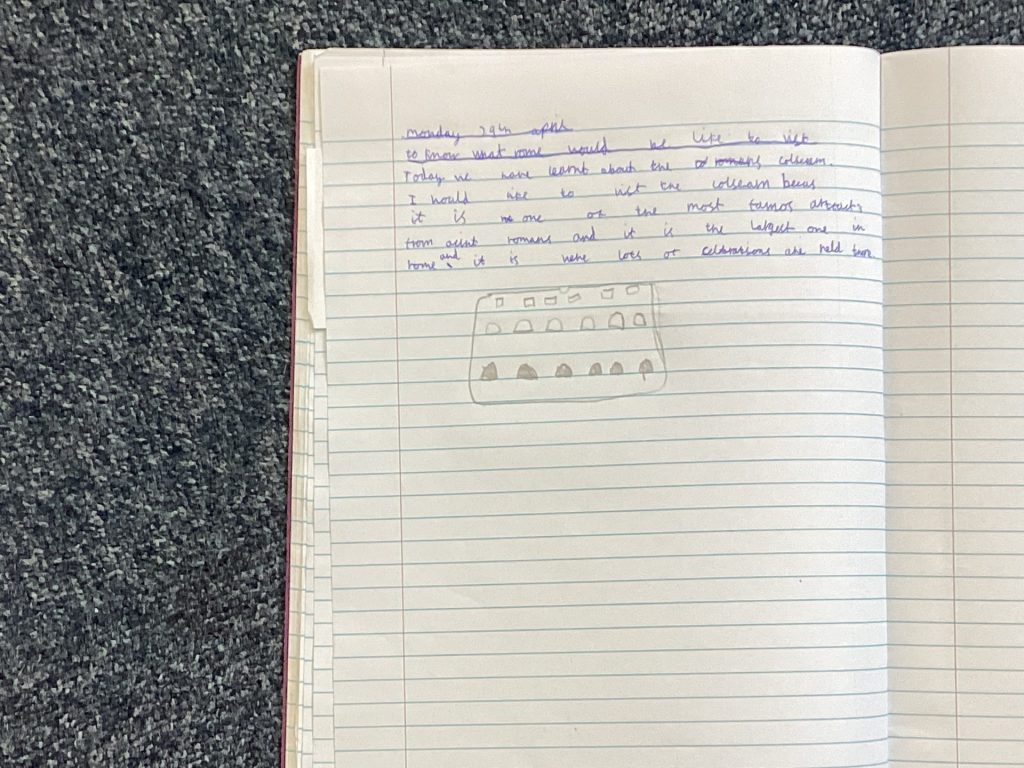 monday 29th april
to know what rome would be like to vist
Today we have learnt about the romans colseum.
I would like to vist the colseam becus
it is one of the most famos attracts
from acint romans and it is the largest one in
rome and it is were lots of celbrations are held